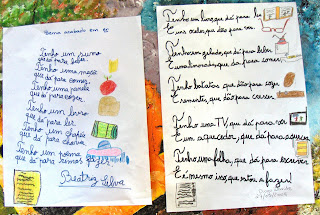 Tema acabado em er
Tenho um sumo
que dá para beber.
Tenho uma maçã
que dá para comer.
Tenho uma panela
que dá para cozer.
Tenho um livro
que dá para ler.
Tenho um chapéu
que dá para chover.
Tenho um poema
que dá para vermos fazer.
Beatriz Silva
Tenho um livro, que dá para ler
E uns óculos, que dão para ver.
Tenho um gelado, que dá para lamber
E uma limonada, que dá para
Tenho batatas que dão para cozer
E sementes, que dão para crescer.
Tenho uma TV, que dá para ver
E um aquecedor, que dá para aquecer.
Tenho uma folha, que dá para escrever
E é mesmo isso que estou a fazer!